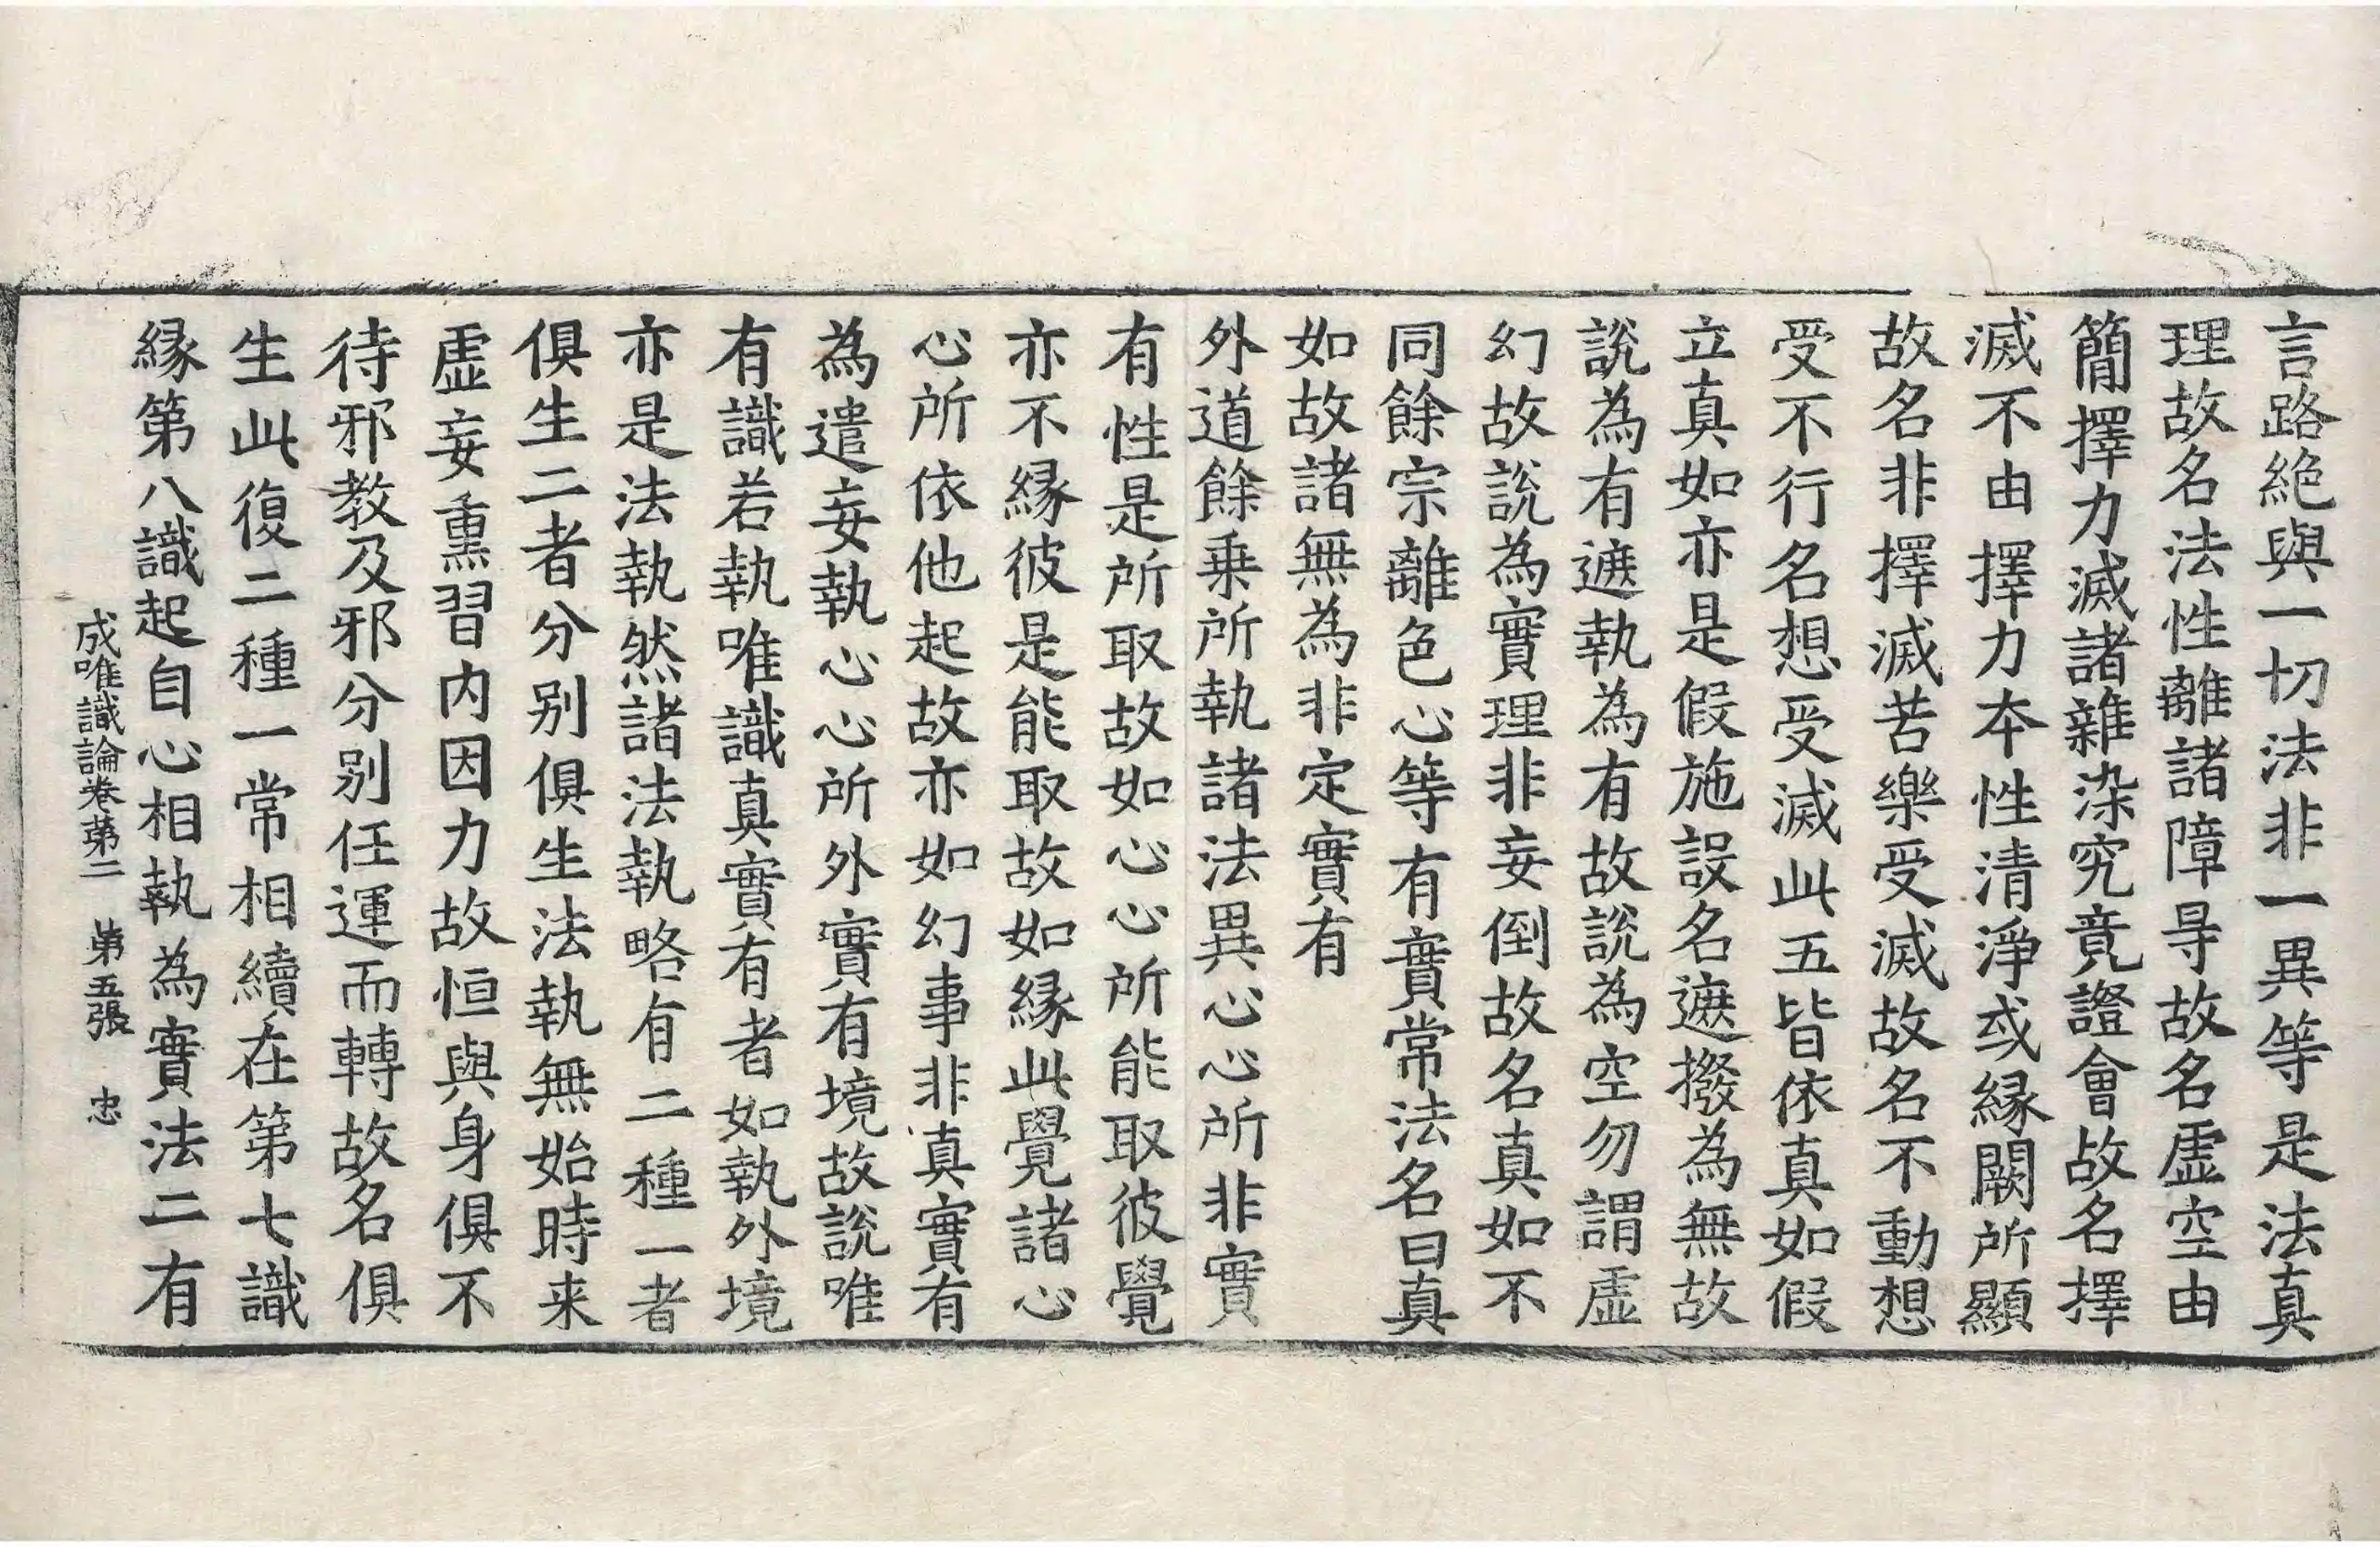 言路絶與一切法非一異等是法真
理故名法性離諸障㝵故名虛空由
簡擇力滅諸雜染究竟證會故名擇
滅不由擇力本性清淨或緣闕所顯
故名非擇滅苦樂受滅故名不動想
受不行名想受滅此五皆依真如假
立真如亦是假施設名遮撥為無故
說為有遮執為有故說為空勿謂虛
幻故說為實理非妄倒故名真如不
同餘宗離色心等有實常法名曰真
如故諸無為非定實有
外道餘乗所執諸法異心心所非實
有性是所取故如心心所能取彼覺
亦不緣彼是能取故如緣此覺諸心
心所依他起故亦如幻事非真實有
為遣妄執心心所外實有境故說唯
有識若執唯識真實有者如執外境
亦是法執然諸法執略有二種一者
俱生二者分别俱生法執無始時来
虛妄熏習内因力故恒與身俱不
待邪教及邪分别任運而轉故名俱
生此復二種一常相續在第七識
緣第八識起自心相執為實法二有
成唯識論卷苐二　苐五張　忠